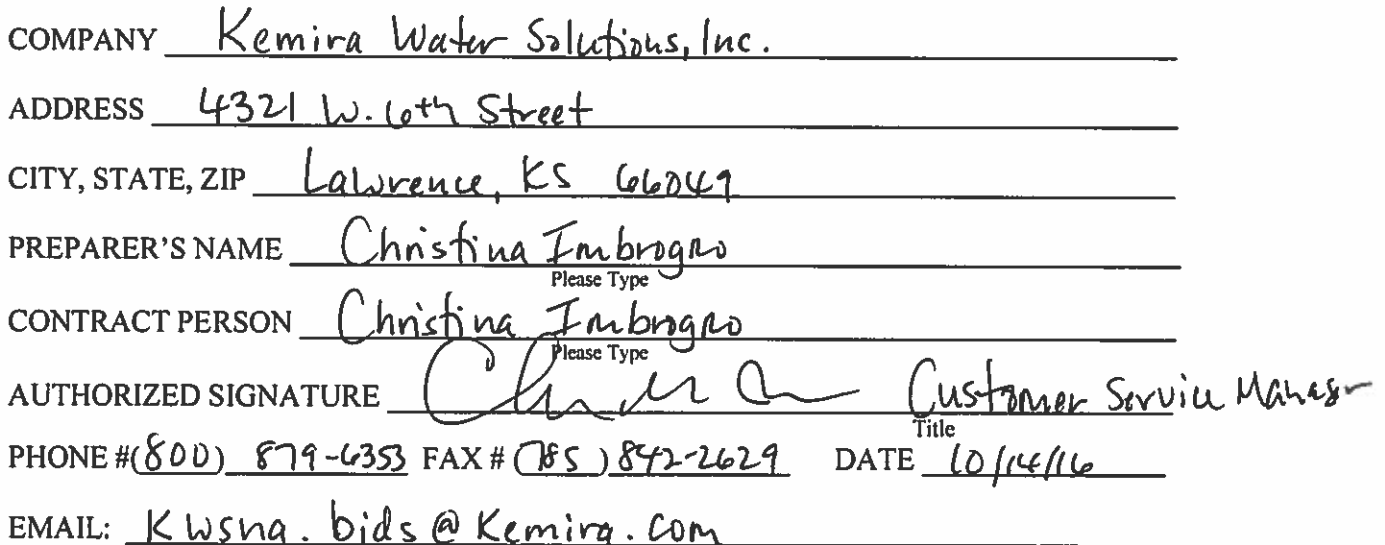 COMPANY Kemira Water Solutions, Inc.
ADDRESS 4321 W. 6th Street
CITY, STATE, ZIP Lawrence, KS 66049
PREPARER'S NAME Christina Imbrogno
Please Type
CONTRACT PERSON Christina Imbrogno
Please Type
AUTHORIZED SIGNATURE Customer Service Manager
Title
PHONE #(800) 879-6353 FAX # (785) 842-2629 DATE 10/14/16
EMAIL: Kwsna.bids@Kemira.com